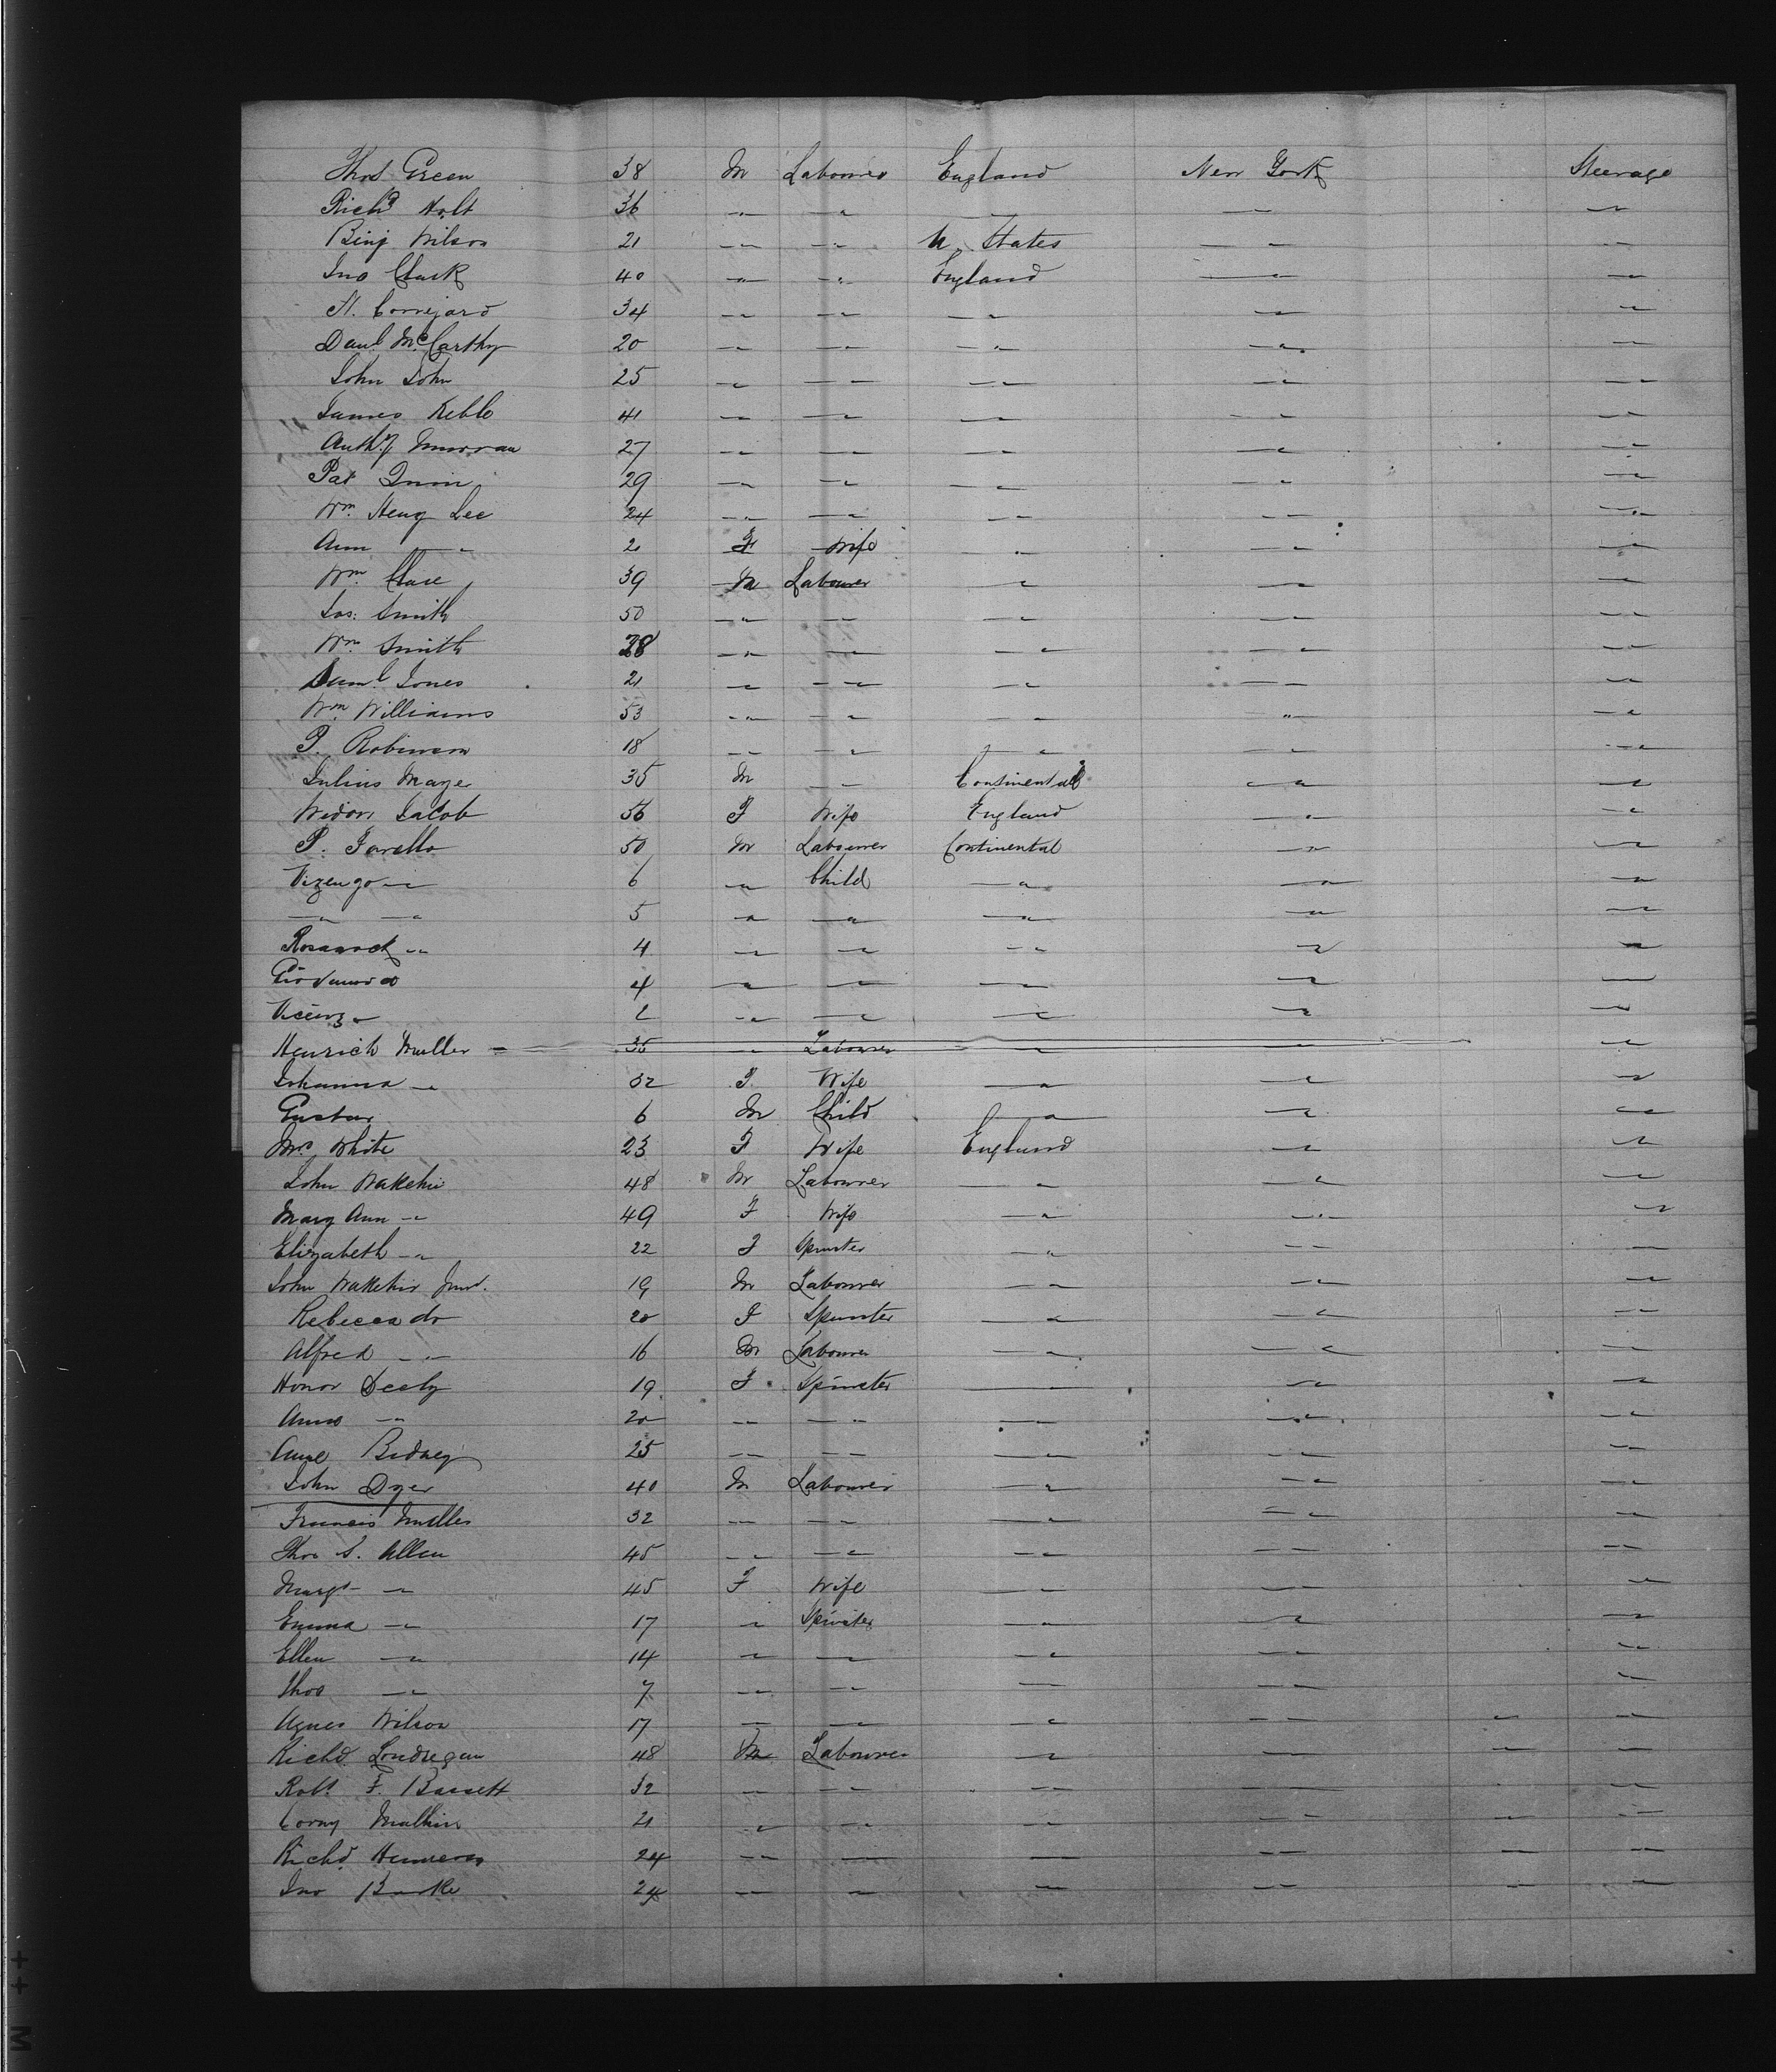 Thos Green 38 M Labourer England New York Steerage
Richd Holt 36 " " " " "
Binj Wilson 21 " " U. States " "
Jno Clark 40 " " England " "
34 " " " " "
Danl McCarthy 20 " " " " "
John John 25 " " " " "
James Keble 41 " " " " "
Anthy 27 " " " " "
Pat Quin 29 " " " " "
Wm Henry Lee 24 " " " " "
Ann " 2 F Wife " " "
Wm Clare 39 M Labourer " " "
Jos: Smith 50 " " " " "
Wm Smith 38 " " " " "
Saml Jones 21 " " " " "
Wm Williams 53 " " " " "
P. Robinson 18 " " " " "
Julius Mayer 35 M " Continental " "
Widow Jacob 56 F Wife England " "
P. Farello 50 M Labourer Continental " "
Vizengo " 6 " Child " " "
" " 5 " " " " "
" 4 " " " " "
4 " " " " "
Vicenz " 2 " " " " "
Henrich Muller 35 " Labourer " " "
Johanna " 32 F Wife " " "
Gustav 6 M Child " " "
Mrs White 23 F Wife England " "
John Wakehir 48 M Labourer " " "
Mary Ann " 49 F Wife " " "
Elizabeth " 22 F Spinster " " "
John Wakehir Junr. 19 M Labourer " " "
Rebecca do 20 F Spinster " " "
Alfred " 16 M Labourer " " "
Honor Deely 19 F Spinster " " "
Anne " 20 " " " " "
Anne Bidney 25 " " " " "
John Dyer 40 M Labourer " " "
Francis Muller 32 " " " " "
Thos S. Allen 45 " " " " "
Margt " 45 F Wife " " "
Emma " 17 " Spinster " " "
Ellen " 14 " " " " "
Thos " 7 " " " " "
Agnes Wilson 17 " " " " " "
Richd Londregan 48 M Labourer " " " "
Robt F. Bassett 32 " " " " "
Corny Mulkin 21 " " " " " "
Richd 24 " " " " " "
Jno Burke 24 " " " " " "